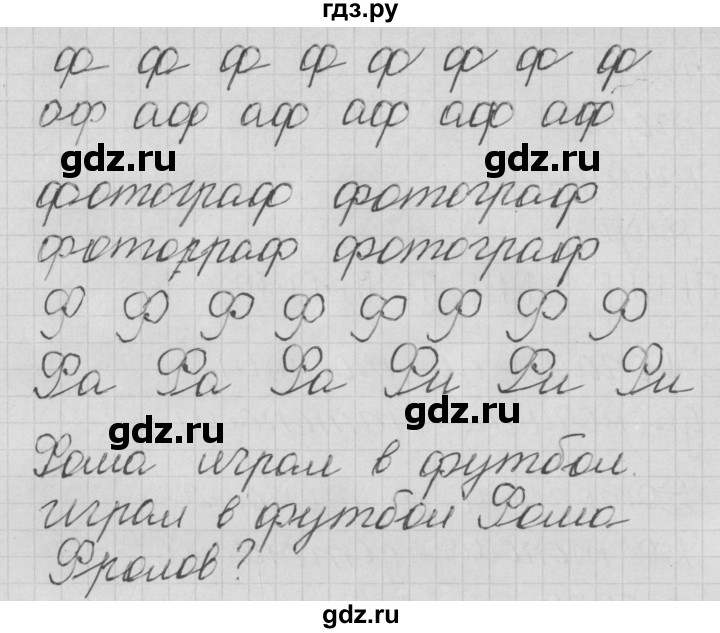 гдз.ру
ф ф ф ф ф ф ф ф
аф аф аф аф аф аф
gdz.ru gdz.ru
фотограф фотограф
фотограф фотограф
Ф Ф Ф Ф Ф Ф Ф Ф
Фа Фа Фа Фи Фи Фи
gdz.ru gdz.ru
Фома играл в футбол.
играл в футбол Фома
Фролов?
gdz.ru gdz.ru
gdz.ru